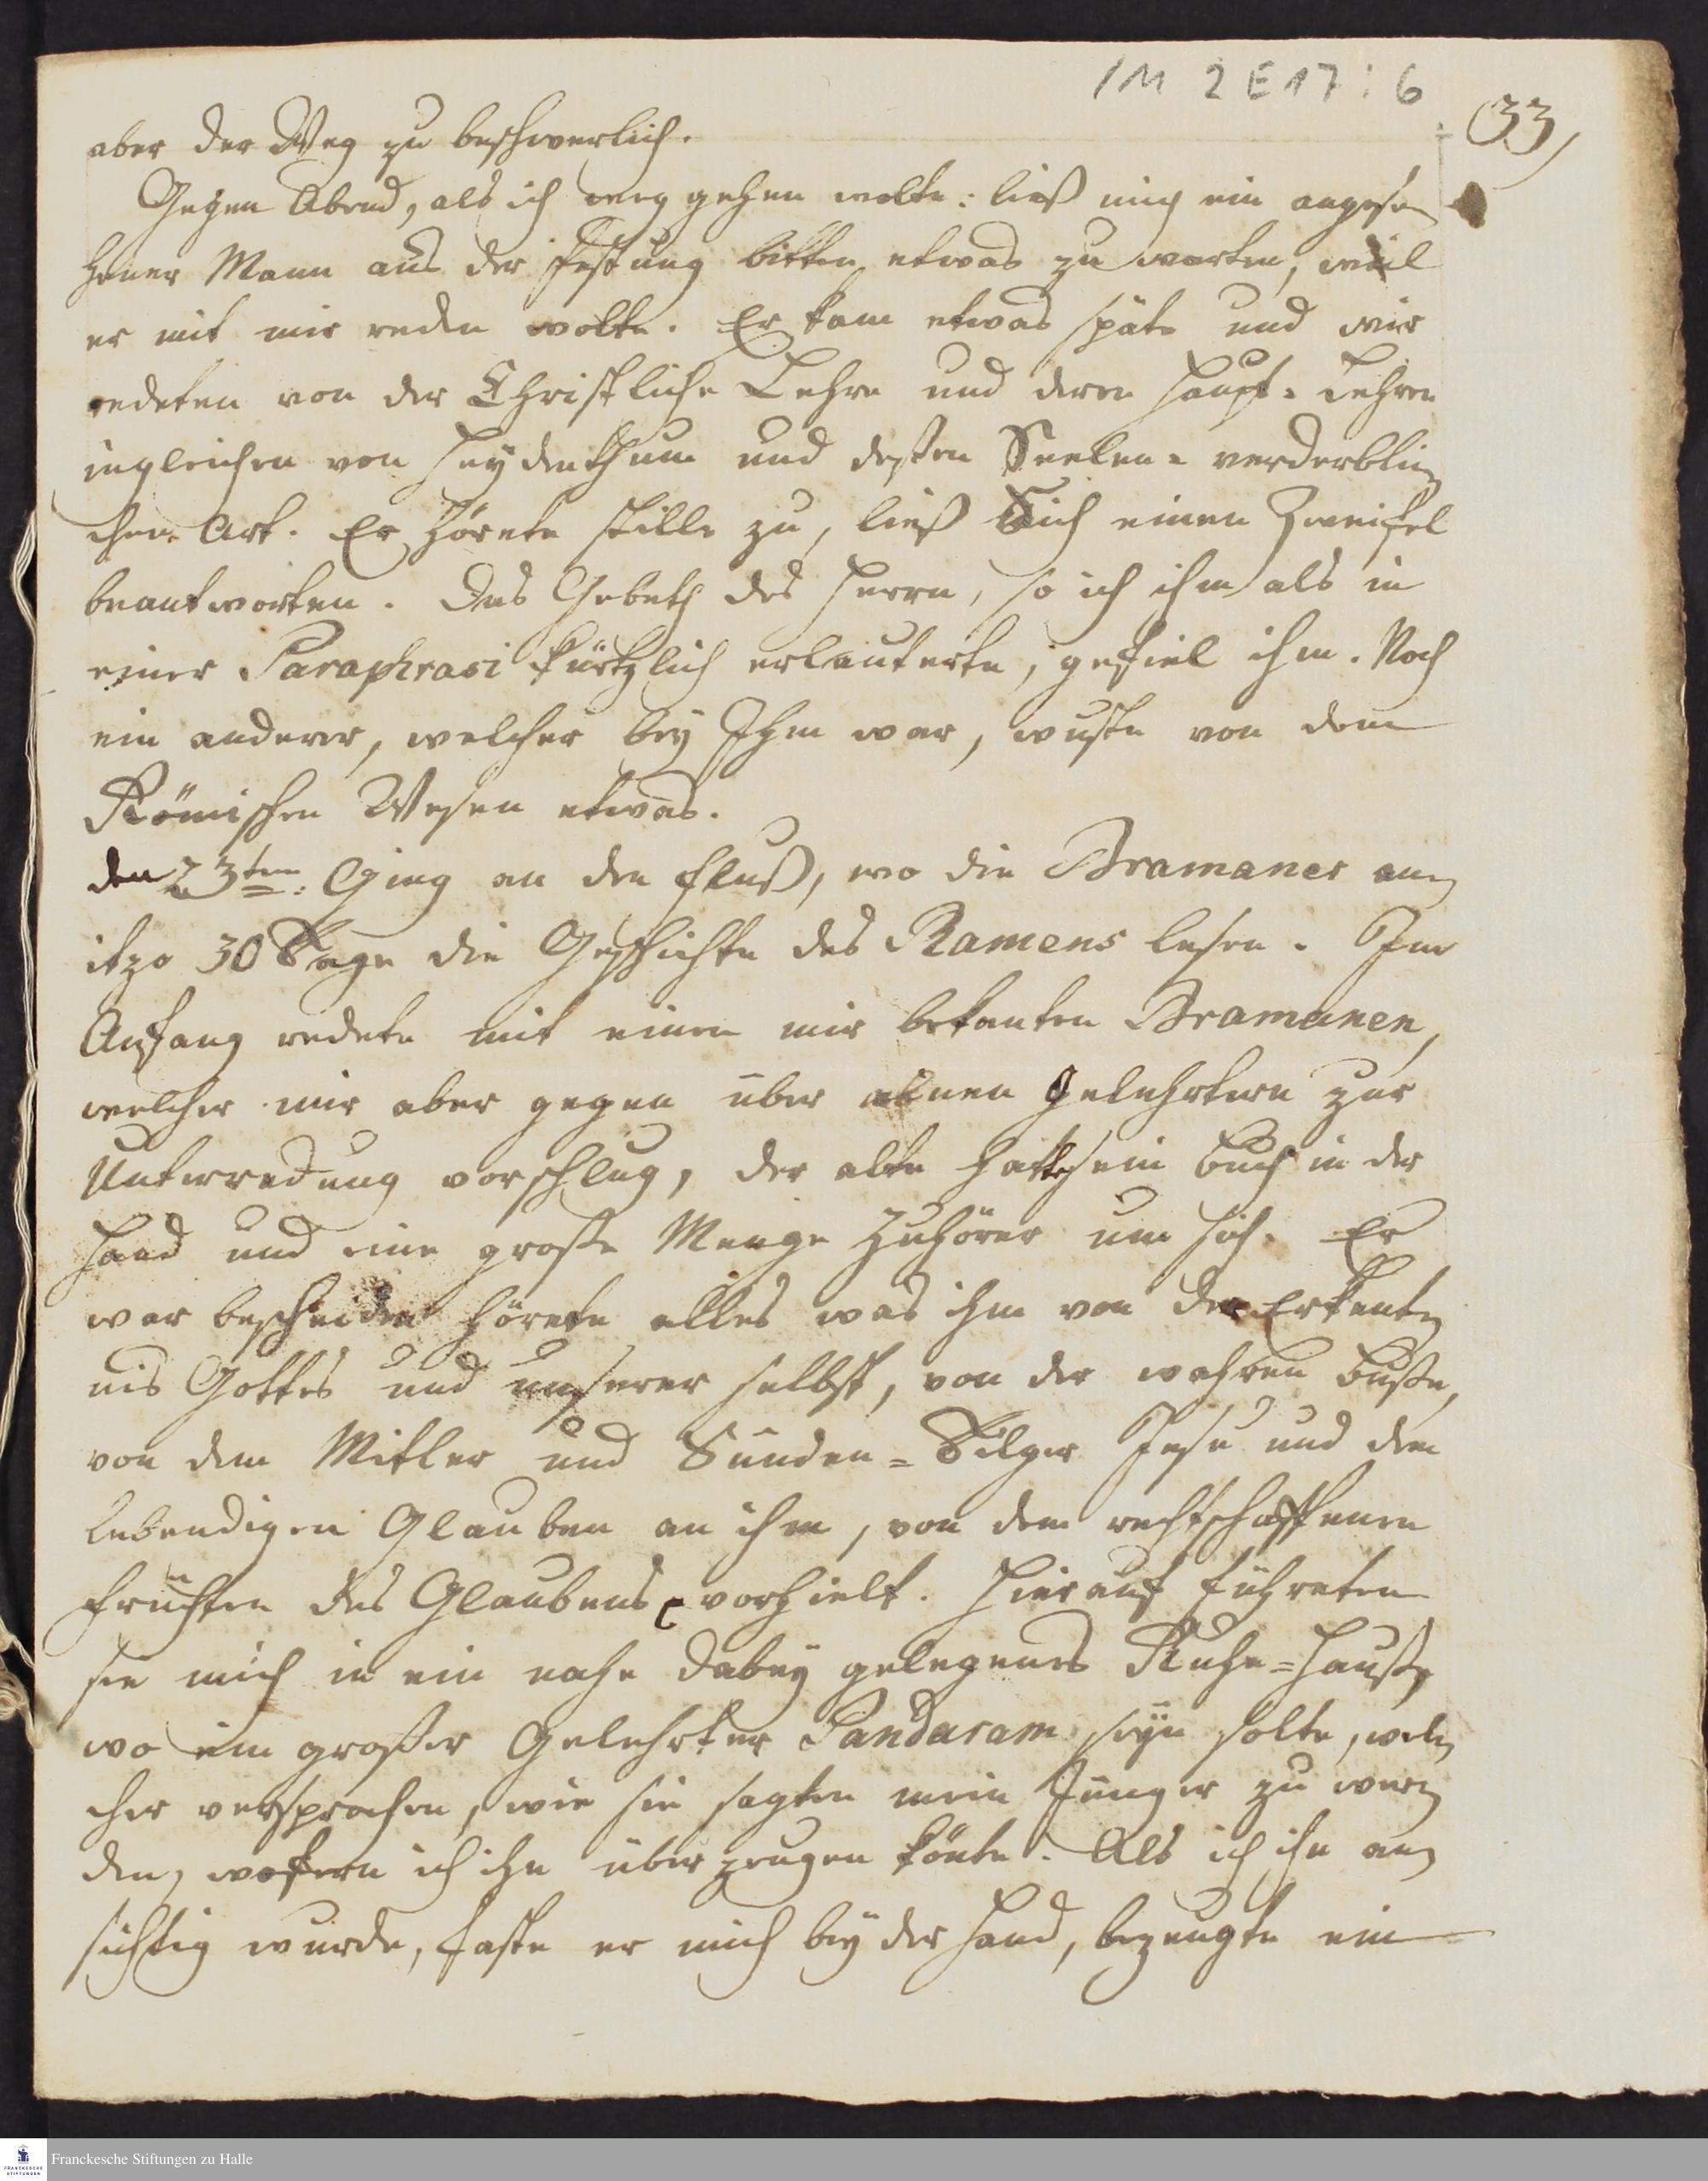 1M 2 E 17 : 6
33
aber der Weg zu beschwerlich.
Gegen Abend, als ich weg gehen wolte: ließ mich ein angese-
hener Mann aus der Festung bitten etwas zu warten, weil
er mit mir reden wolte. Er kam etwas späte und wir
redeten von der Christliche Lehre und deren Haupt-Lehren
ingleichen von Heydenthum und deßen Seelen-verderbli-
chen Art. Er hörete stille zu, ließ Sich einen Zweifel
beantworten. Das Gebeth des Herrn, so ich ihm als in
einer Paraphrasi kürtzlich erlauterte, gefiel ihm. Noch
ein anderer, welcher bey Ihm war, wuste von dem
Römischen Wesen etwas.
den 23ten: Ging an den Fluß, wo die Bramaner an-
itzo 30 Tage die Geschichte des Ramens lesen. Im
Anfang redete mit einen mir bekanten Bramanen,
welcher mir aber gegen über einen Gelehrtern zur
Unterredung vorschlug, der alte hatte sein Buch in der
Hand und eine große Menge Zuhörer um sich. Er
war bescheiden hörete alles was ihm von der Erkent-
nis Gottes und unserer selbst, von der wahren Buße,
von dem Mitler und Sünden-Tilger Jesu und dem
lebendigen Glauben an ihm, von dem rechtschaffenen
Früchten des Glaubens vorhielt. Hierauf führeten
sie mich in ein nahe dabey gelegenes Ruhe-Hauß,
wo ein großer Gelehrter Pandaram seyn solte, wel-
cher versprochen, wie sie sagten mein Jünger zu wer-
den, wofern ich ihn überzeugen könte. Als ich ihn an-
sichtig wurde, faste er mich bey der Hand, bezeugte ein
Franckesche Stiftungen zu Halle
FRANCKESCHE
STIFTUNGEN